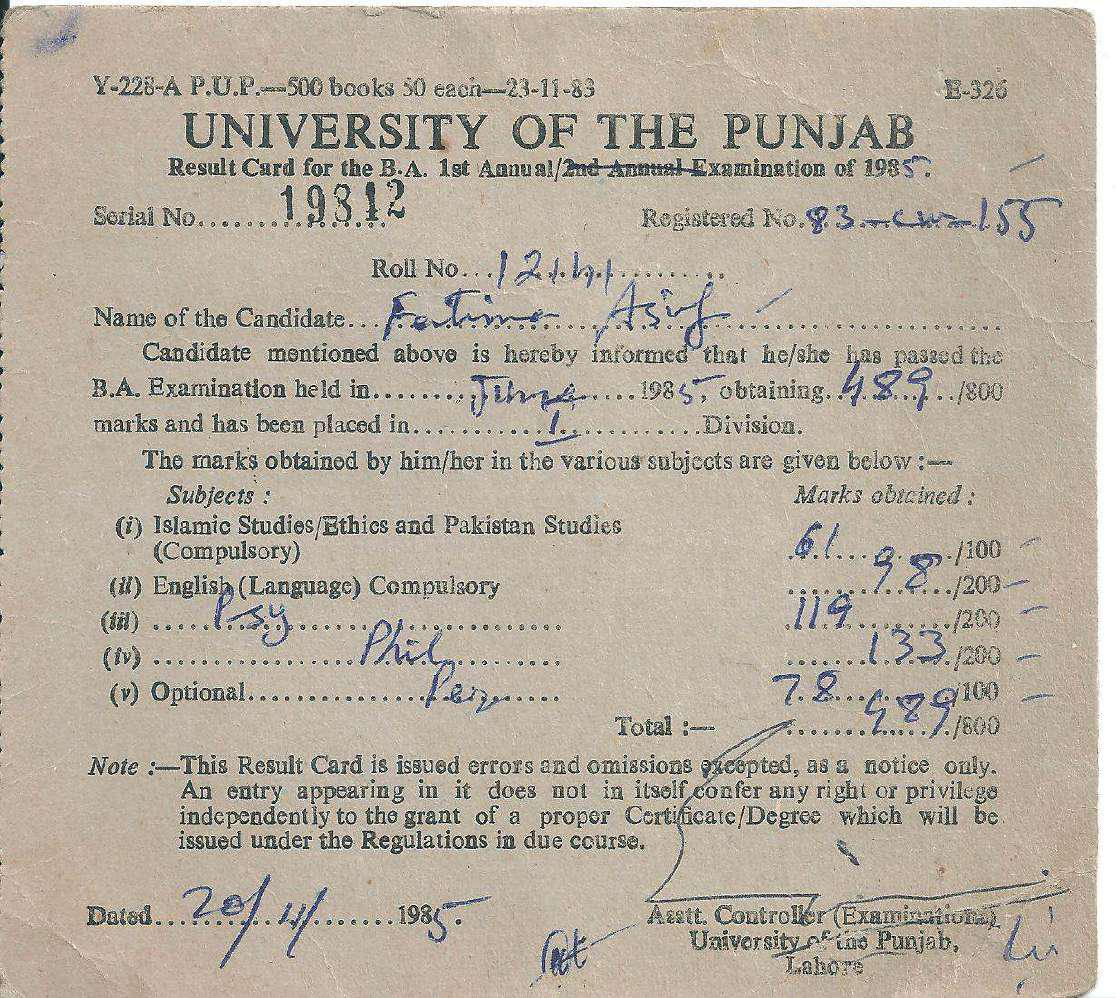 Y-228-A P.U.P.—500 books 50 each—23-11-83 E-326
UNIVERSITY OF THE PUNJAB
Result Card for the B.A. 1st Annual/2nd Annual Examination of 1985.
Serial No. 19812 Registered No. 83-cw-155
Roll No. 12141
Name of the Candidate Fatima Asif
Candidate mentioned above is hereby informed that he/she has passed the
B.A. Examination held in June 1985, obtaining 489/800
marks and has been placed in I Division.
The marks obtained by him/her in the various subjects are given below :—
Subjects : Marks obtained :
(i) Islamic Studies/Ethics and Pakistan Studies
(Compulsory) 61/100
(ii) English (Language) Compulsory 98/200
(iii) Psy 119/200
(iv) Phil 133/200
(v) Optional Per 78/100
Total :— 489/800
Note :—This Result Card is issued errors and omissions excepted, as a notice only.
An entry appearing in it does not in itself confer any right or privilege
independently to the grant of a proper Certificate/Degree which will be
issued under the Regulations in due course.
Dated 20/11/1985. Asstt. Controller (Examinations)
University of the Punjab,
Lahore